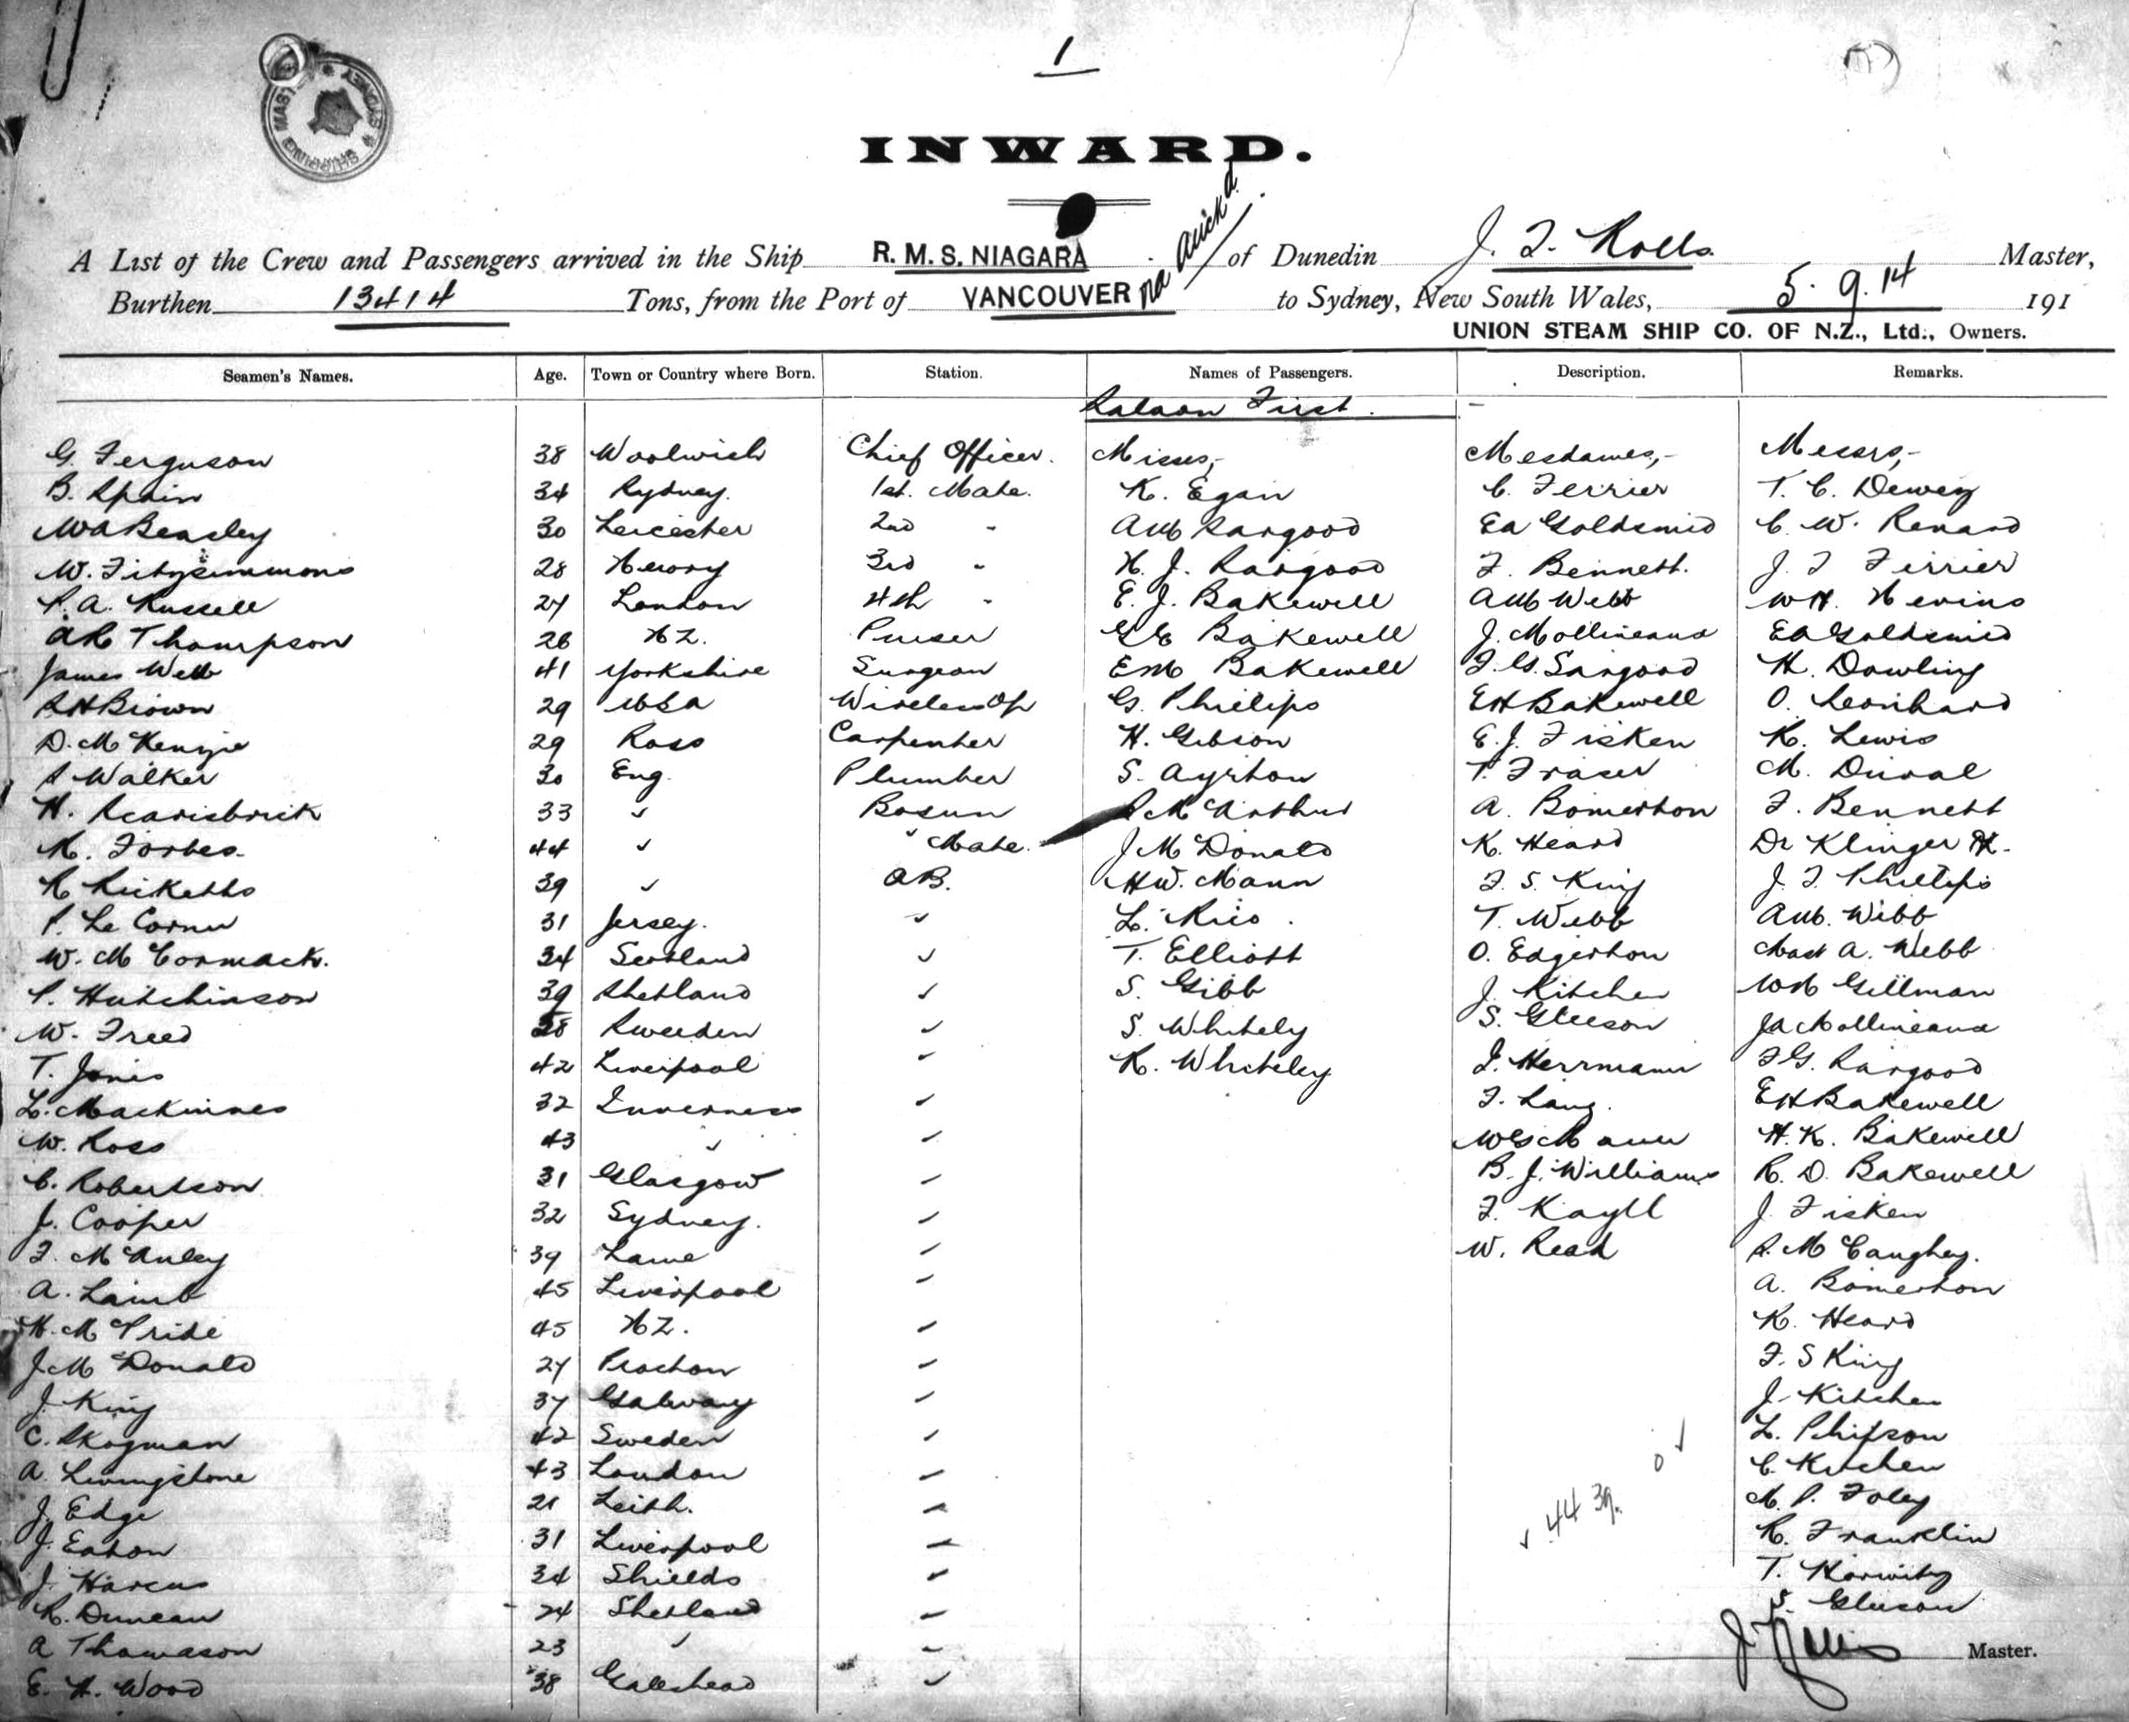 1
INWARD.
A List of the Crew and Passengers arrived in the Ship R. M. S. NIAGARA of Dunedin J. T. Rolls Master,
Burthen 13414 Tons, from the Port of VANCOUVER via Auckd. to Sydney, New South Wales, 5. 9. 14 191
UNION STEAM SHIP CO. OF N.Z., Ltd., Owners.
Seamen's Names. Age. Town or Country where Born. Station. Names of Passengers. Description. Remarks.
Saloon First.
G. Ferguson 38 Woolwich Chief Officer. Misses,- Mesdames,- Messrs,-
B. Spain 34 Sydney. 1st. Mate. K. Egan C. Ferrier T. C. Dewey
WA Beasley 30 Leicester 2nd " AM Sargood EA Goldsmid C. W. Renard
W. Fitzsimmons 28 Newry 3rd " H. J. Sargood F. Bennett. J. F Ferrier
P. A. Russell 27 London 4th " E. J. Bakewell AM Webb WH. Nevins
AR Thompson 26 NZ. Purser GE Bakewell J. Mollineaux EA Goldsmid
James Webb 41 Yorkshire Surgeon EM Bakewell F. G. Sargood H. Dowling
SH Brown 29 USA Wireless Op G. Philips EH Bakewell O. Leonhard
D. McKenzie 29 Ross Carpenter H. Gibson E. J. Fisken R. Lewis
S Walker 30 Eng. Plumber S. Ayrton T. Fraser M. Duval
H. Scarisbrick 33 " Bosun S McArthur A. Bomerton F. Bennett
R. Forbes. 44 " " Mate. J McDonald K. Heard Dr Klinger H.
R Ricketts 39 " AB. HW. Mann F. S. King J. F. Phillips
P. Le Cornu 31 Jersey. " L. Rico. T. Webb AM. Webb
W. McCormack. 34 Scotland " T. Elliott O. Edgerton Mast A. Webb
P. Hutchinson 39 Shetland " S. Gibb J. Kitchen WH Gillman
W. Freed 28 Sweeden " S. Whitely S. Gleeson JA Mollineaux
T. Jones 42 Liverpool " R. Whiteley J. Herrmann F G. Sargood
L. Mackinnes 32 Inverness " F. Lang. EH Bakewell
W. Ross 43 " " WG Mann H. K. Bakewell
C. Robertson 31 Glasgow " B. J. Williams R. D. Bakewell
J. Cooper 32 Sydney. " F. Kayll J. Fisken
F. McAuley 39 Larne " W. Read S. McCaughey.
A. Lamb 45 Liverpool " A. Bomerton
H. McPride 45 NZ. " K. Heard
J. McDonald 27 " F. S King
J. King 37 Galway " J. Kitchen
C. Skogman 42 Sweden " L. Phipson
A. Livingstone 43 London " C. Kitchen
J. Edge 21 Leith. " M. P. Foley
J. Eaton 31 Liverpool " R. Franklin
J. Harcus 34 Shields " T. Horwitz
R. Duncan 24 Shetland " S. Gleeson
A Thomason 23 " "
E. H. Wood 38 Gateshead "
44 39.
Master.